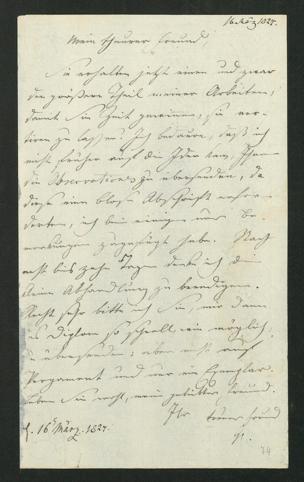 16 März 1827.
Mein theurer Freund,
Sie erhalten jetzt einen und zwar
den größern Theil meiner Arbeiten,
damit Sie Zeit gewinnen, sie
zu lassen. Ich bedaure, daß ich
nicht früher auf die Idee kam, Ihnen
die Observationes zu uebersenden, da
diese eine bloße Abschrift erfor-
derten, ich bin einigen neue Be-
merkungen zugefügt habe. Nach
acht bis zehn Tagen denke ich die
kleine Abhandlung zu beendigen.
Recht sehr bitte ich Sie, mir dann
das Diplom so schnell wie möglich
zu übersenden; aber nicht auf
Pergament und nur ein Exemplar.
Leben Sie recht, mein geliebter Freund.
Ihr treuer Freund
16 März. 1827.